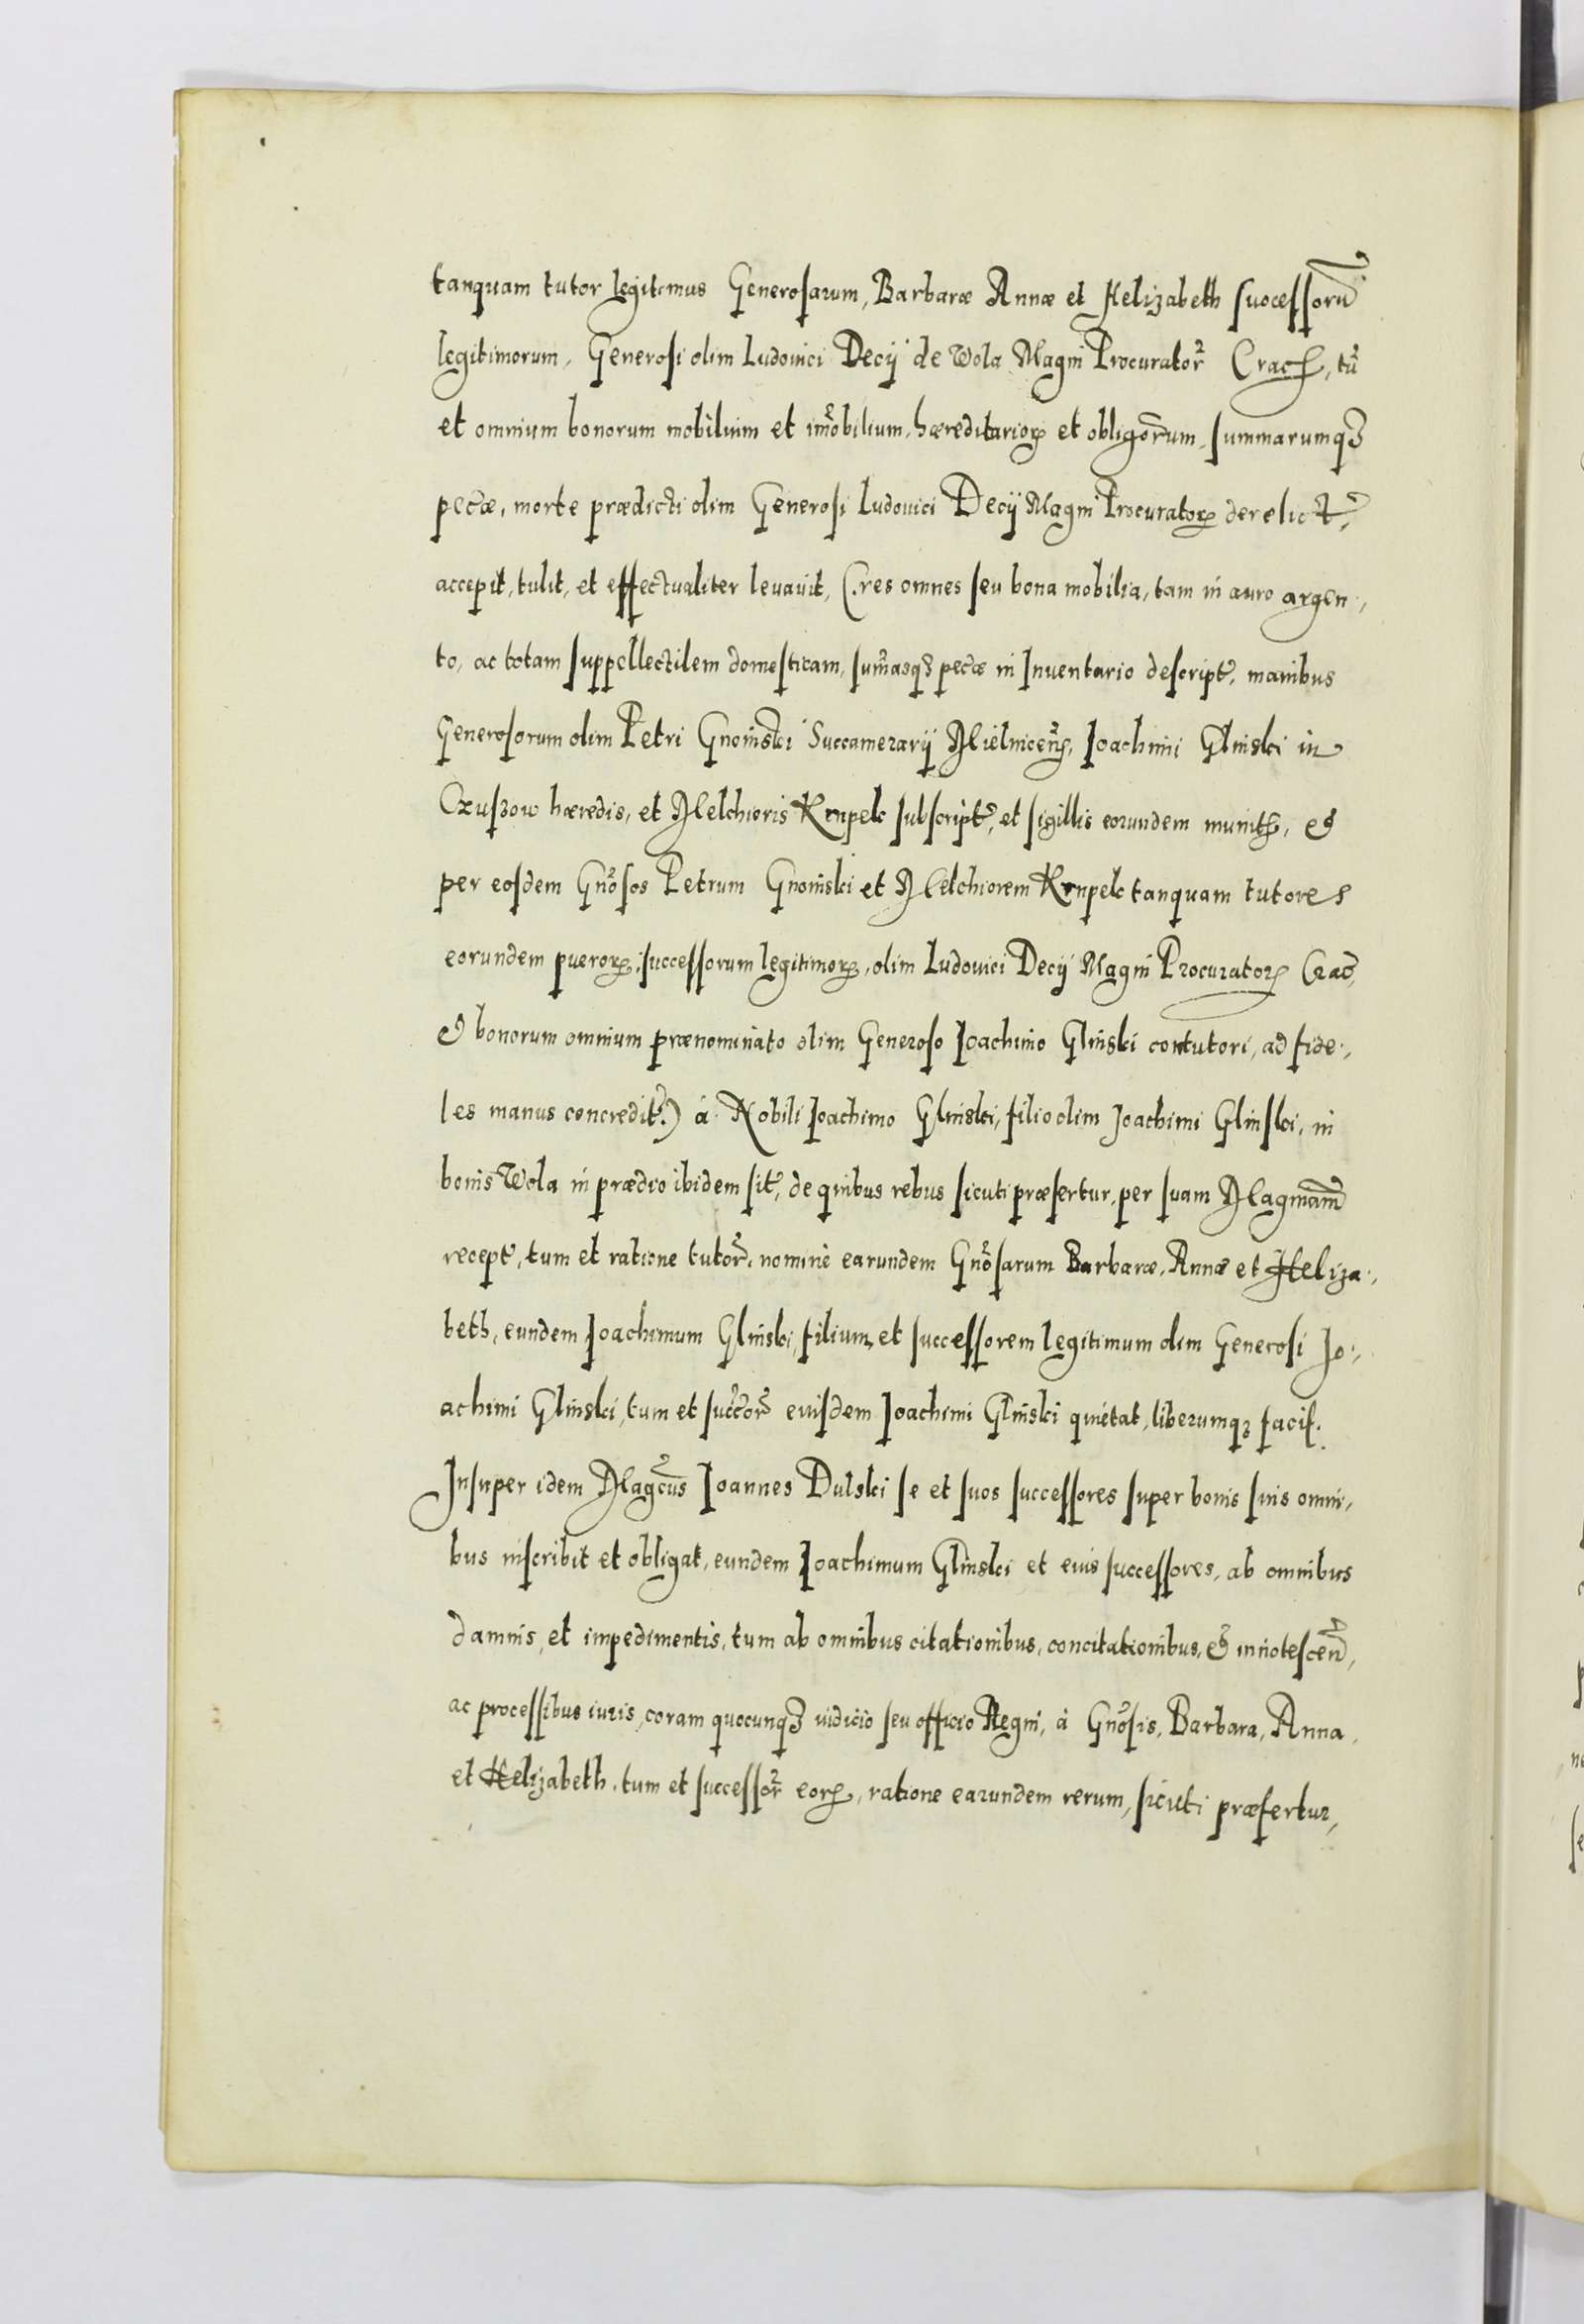 tanquam tutor legitimus Generosarum, Barbaræ Annæ et Helizabeth successorũ
legitimorum, Generosi olim Ludovici Decij de Wola Magni Procurator Crac, tũ
et omnium bonorum mobilium et im̃obilium, hæreditarioꝝ et obligorum, summarumqꝫ
pecæ, morte prædicti olim Generosi Ludovici Decij Magni Procuratoꝝ derelict,
accepit, tulit, et effectualiter levavit, (res omnes seu bona mobilia, tam in auro argen.,
to, ac totam suppellectilem domesticam, sum̃asqꝫ pecæ in Inventario descript, manibus
Generosorum olim Petri Gnoinski Succamerarij Mielnicen, Joachimi Glinski in
Czuszow hæredis, et Melchioris Krupek subscript, et sigillis eorundem munit, et
per eosdem Gnosos Petrum Gnoinski et Melchiorem Krupek tanquam tutores
eorundem pueroꝝ, successorum legitimoꝝ, olim Ludovici Decij Magni Procurator Crac,
et bonorum omnium prænominato olim Generoso Joachimo Glinski contutori, ad fide.,
les manus concredit) à Nobili Joachimo Glinski, filio olim Joachimi Glinski, in
bonis Wola in prædio ibidem sit, de quibus rebus sicuti præfertur, per suam Magnam
recept, tum et ratione tutor, nomine earundem Gnosarum Barbaræ, Annæ et Heliza.,
beth, eundem Joachimum Glinski, filium et successorem legitimum olim Generosi Jo.,
achimi Glinski, tum et succor eiusdem Joachimi Glinski quietat, liberumqꝫ facit.
Insuper idem Magcus Joannes Dulski se et suos successores super bonis suis omni,
bus inscribit et obligat, eundem Joachimum Glinski et eius successores, ab omnibus
damnis, et impedimentis, tum ab omnibus citationibus, concitationibus, et innotescen,
ac processibus iuris, coram quocunqꝫ iudicio seu officio Regni, à Gnosis, Barbara, Anna,
et Helizabeth, tum et successor eoꝝ, ratione earundem rerum, sicuti præfertur,